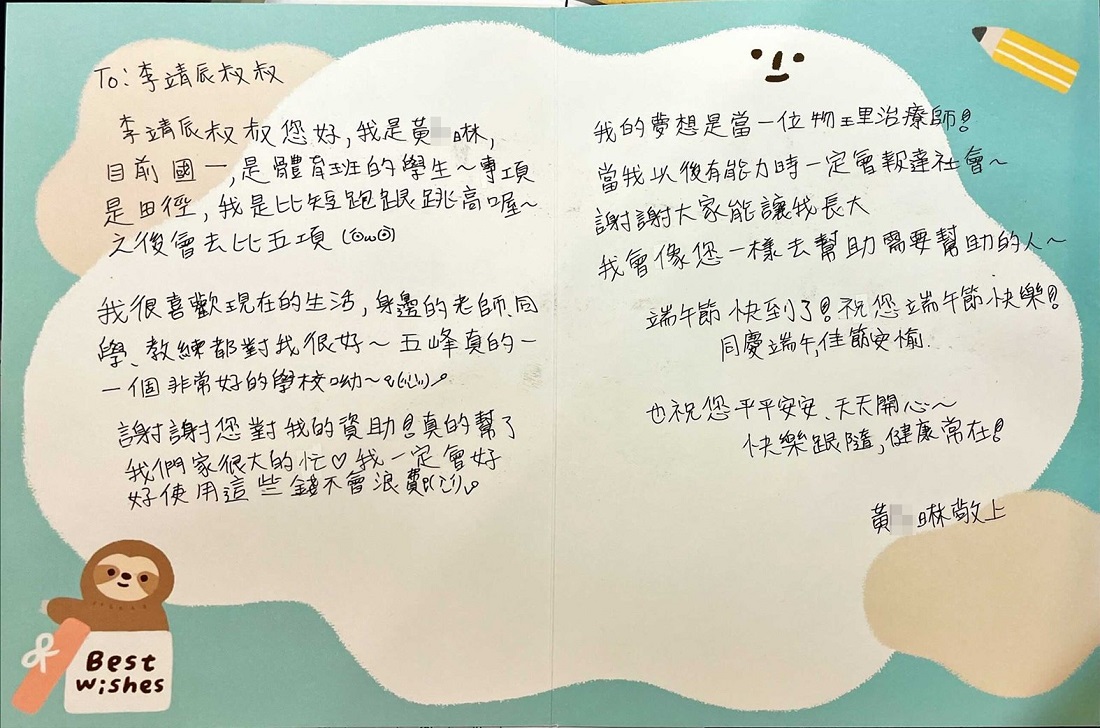 To: 李靖辰叔叔
李靖辰叔叔您好,我是黃 琳,
目前國一,是體育班的學生~專項
是田徑,我是比短跑跟跳高喔~
之後會去比五項(⊙ω⊙)
我很喜歡現在的生活,身邊的老師、同
學、教練都對我很好~五峰真的一
一個非常好的學校呦~
謝謝您對我的資助!真的幫了
我們家很大的忙♡我一定會好
好使用這些錢不會浪費
Best
wishes
我的夢想是當一位物理治療師!
當我以後有能力時一定會報達社會~
謝謝大家能讓我長大
我會像您一樣去幫助需要幫助的人~
端午節快到了!祝您端午節快樂!
同慶端午,佳節安愉.
也祝您平平安安、天天開心~
快樂跟隨,健康常在!
黃 琳敬上